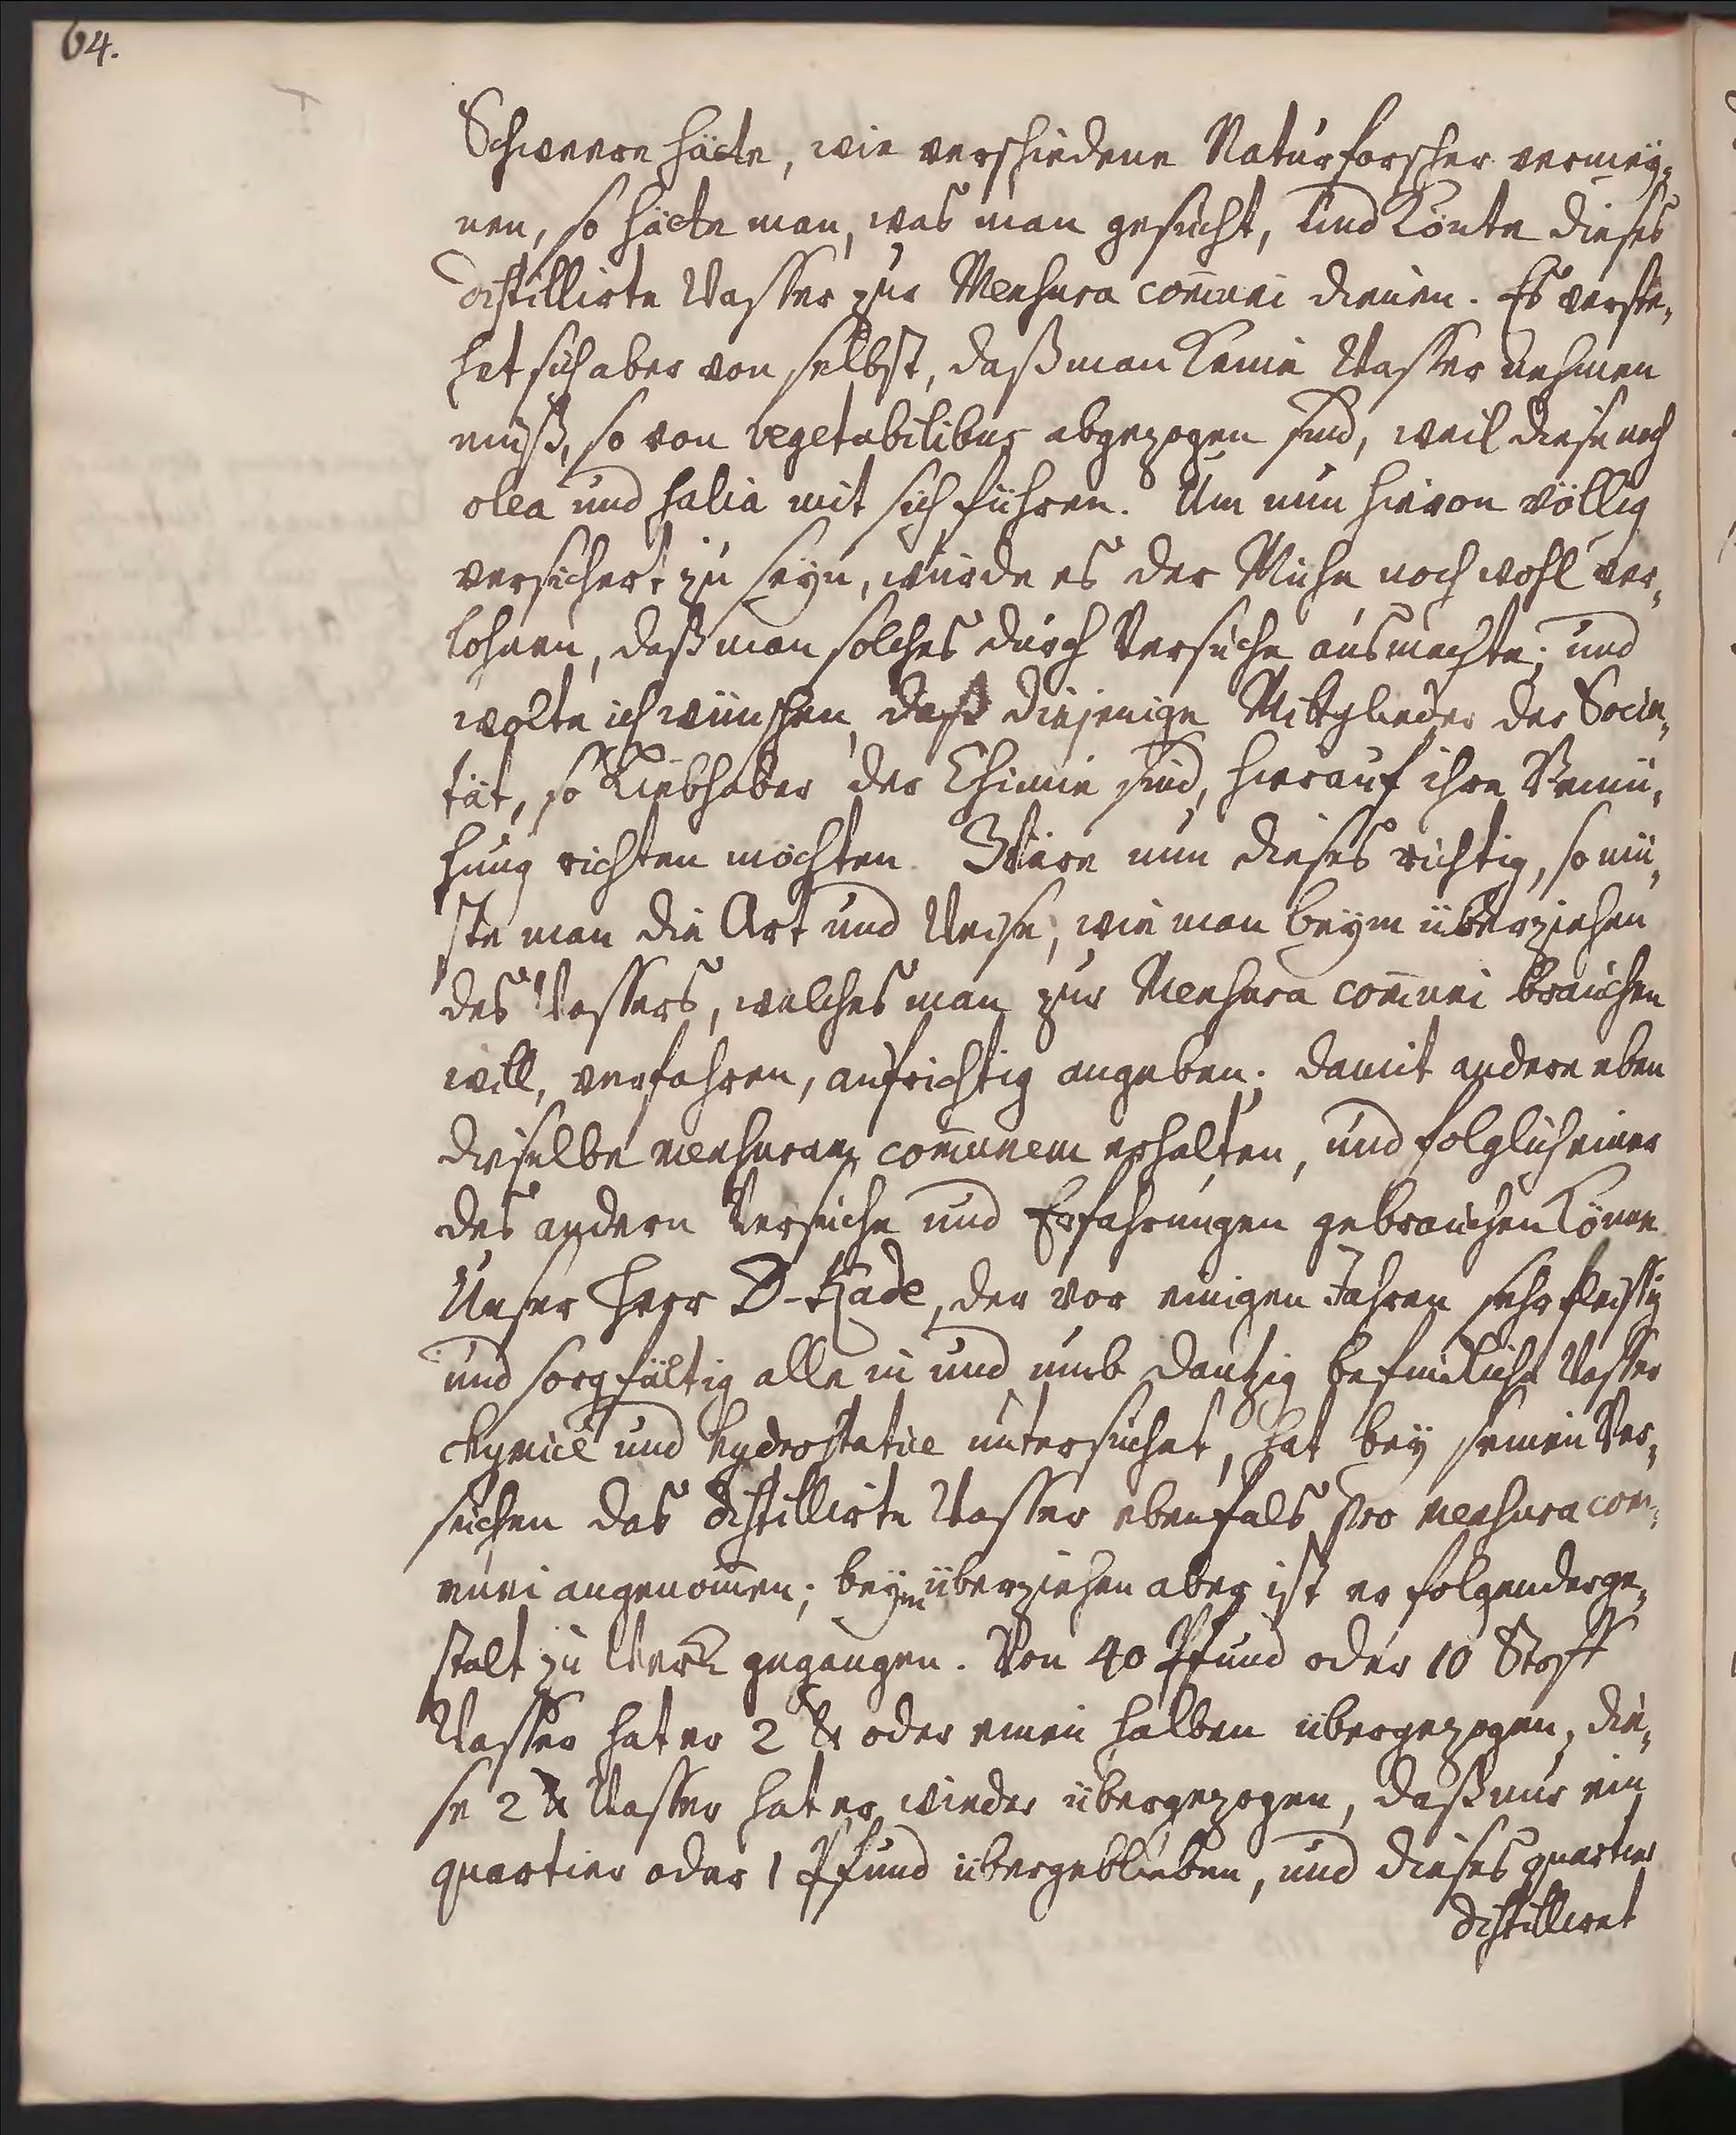 64.
Schweere hätte, wie verschiedene Naturforscher vermey,,
nen, so hätte man, was man gesucht, und könte dieses
distillirte Wasser zur Mensura com̄uni dienen. Es verste,,
het sich aber von selbst, daß man keine Wasser nehmen
muß, so von vegetabilibus abgezogen sind, weil diese noch
olea und salia mit sich führen. Um nun hievon völlig
versichert zu seyn, würde es der Mühe noch wohl ver,,
lohnen, daß man solches durch Versuche ausmachte; und
wolte ich wünschen, daß diejenige Mitglieder der Socie,,
tät, so Liebhaber der Chimie sind, hierauf ihre Bemü,,
hung richten möchten. Wäre nun dieses richtig, so mü,,
ste man die Art und Weise, wie man beym überziehen
des Wassers, welches man zur Mensura com̄uni brauchen
will, verfahren, aufrichtig angeben; damit andere eben
dieselbe mensuram com̄unem erhalten, und folglich einer
des andern Versuche und Erfahrungen gebrauchen könne.
Unser Herr D. Kade, der vor einigen Jahren sehr fleißig
und sorgfältig alle in und umb Dantzig befindliche Wasser
chymice und hydrostatice untersuchet, hat bey seinen Ver,,
suchen das distillirte Wasser ebenfals pro mensura com,,
muni angenom̄en; beym überziehen aber ist er folgenderge,,
stalt zu Werk gegangen. Von 40 Pfund oder 10 Stoff
Wasser hat er 2 ℔ oder einen halben übergezogen, die,,
se 2 ℔ Wasser hat er wieder übergezogen, daß nur ein
quartier oder 1 Pfund übergeblieben, und dieses quartier
distilliret